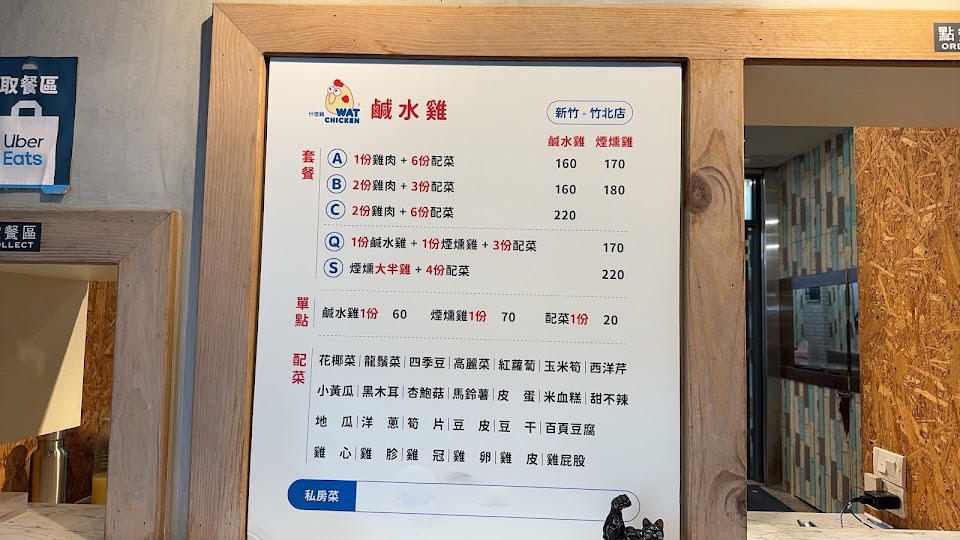 取餐區
Uber
Eats
餐區
OLLECT
什麼雞
WAT
CHICKEN
鹹水雞
新竹 - 竹北店
鹹水雞 煙燻雞
套餐
A 1份雞肉 + 6份配菜 160 170
B 2份雞肉 + 3份配菜 160 180
C 2份雞肉 + 6份配菜 220
Q 1份鹹水雞 + 1份煙燻雞 + 3份配菜 170
S 煙燻大半雞 + 4份配菜 220
單點
鹹水雞1份 60 煙燻雞1份 70 配菜1份 20
配菜
花椰菜|龍鬚菜|四季豆|高麗菜|紅蘿蔔|玉米筍|西洋芹
小黃瓜|黑木耳|杏鮑菇|馬鈴薯|皮 蛋|米血糕|甜不辣
地 瓜|洋 蔥|筍 片|豆 皮|豆 干|百頁豆腐
雞 心|雞 胗|雞 冠|雞 卵|雞 皮|雞屁股
私房菜
點
ORD